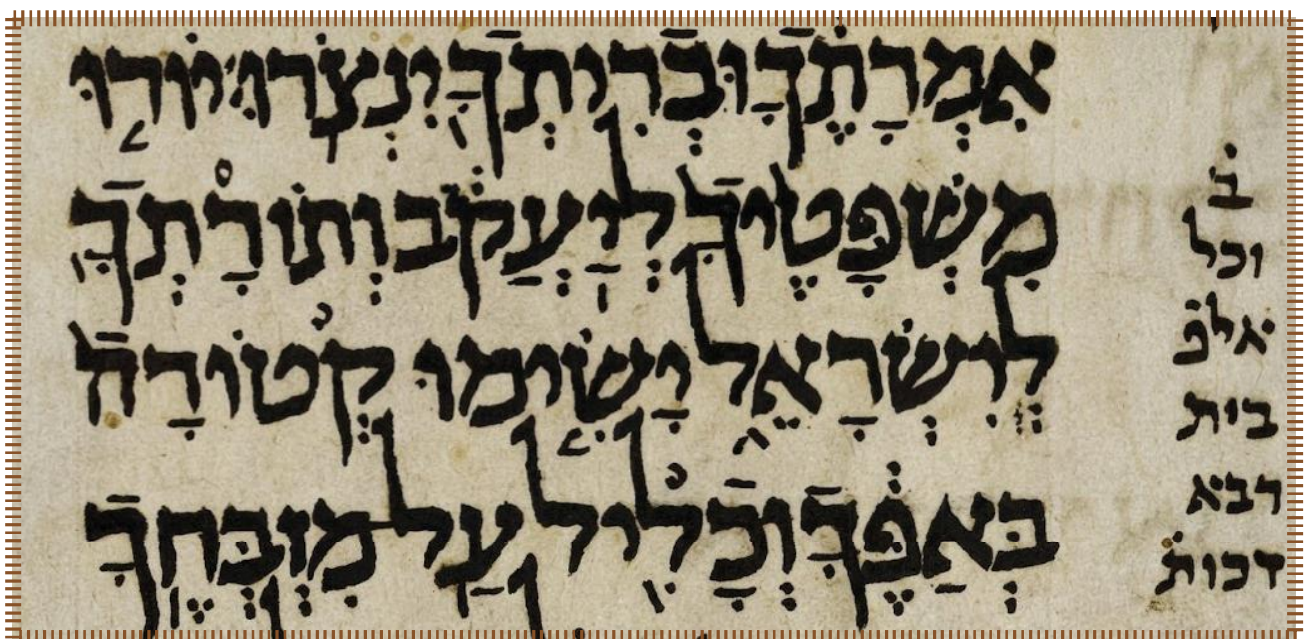 אִמְרָתֶךָ וּבְרִיתְךָ יִנְצֹרוּ׃ יוֹרוּ
מִשְׁפָּטֶיךָ לְיַעֲקֹב וְתוֹרָתְךָ
לְיִשְׂרָאֵל יָשִׂימוּ קְטוֹרָה
בְּאַפֶּךָ וְכָלִיל עַל מִזְבְּחֶךָ
ב
וכל
אלפ
בית
דבא
דכות